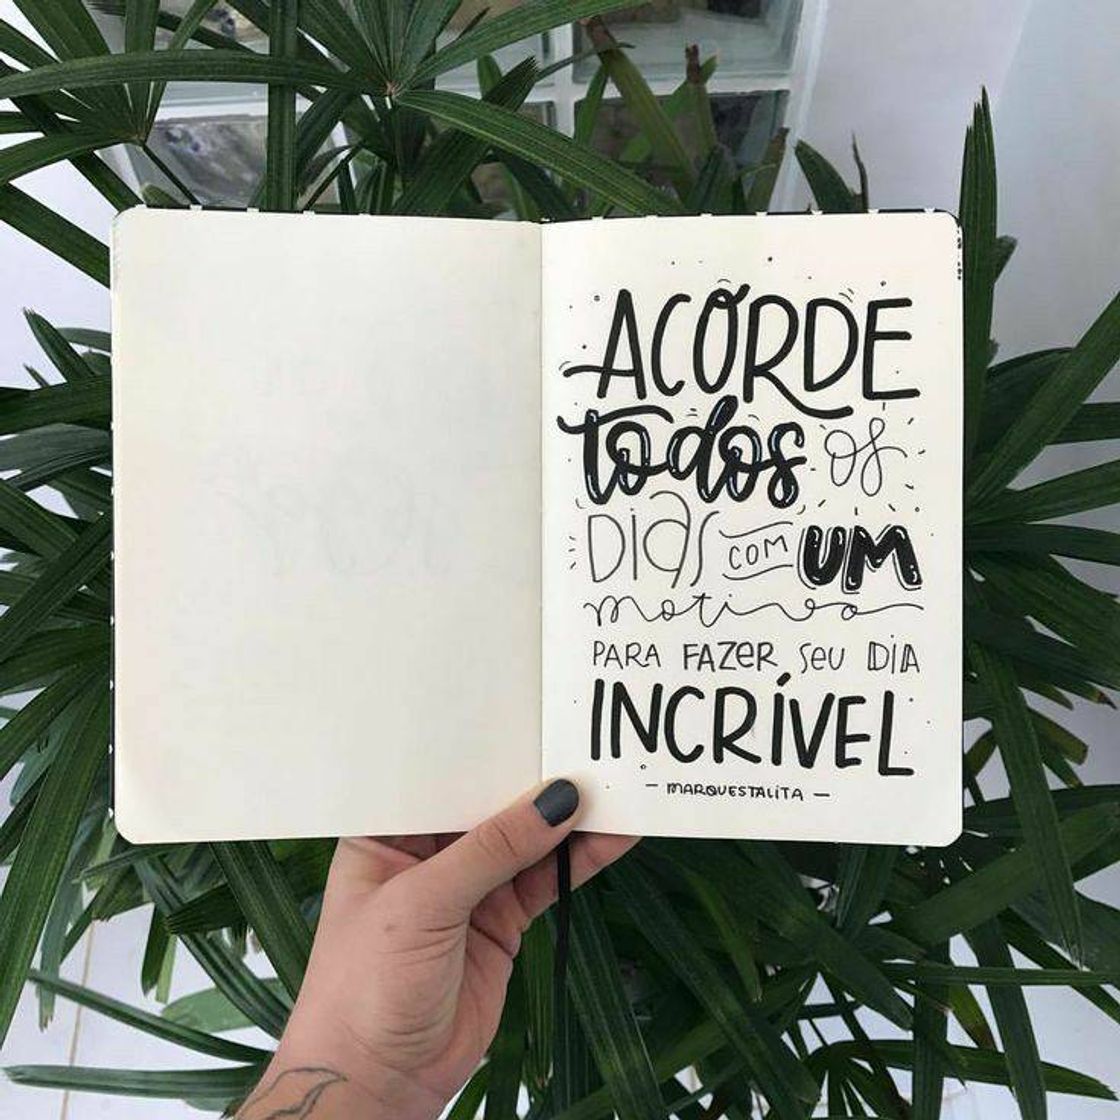 ACORDE
todos os
DIAS COM UM
motivo
PARA FAZER SEU DIA
INCRÍVEL
— MARQUESTALITA —